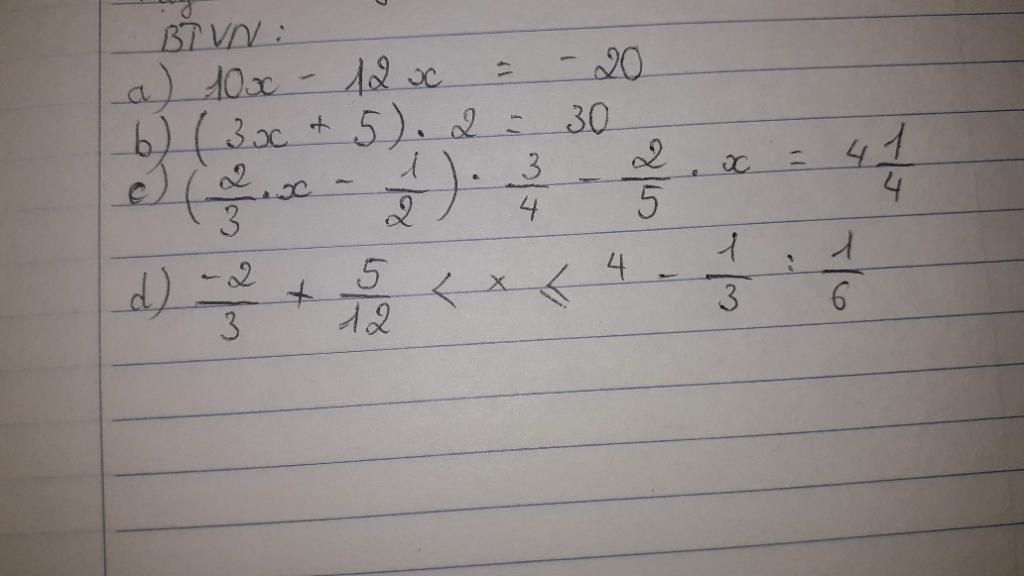 BTVN:
a) 10x - 12x = -20
b) (3x + 5). 2 = 30
c) (2/3 . x - 1/2) . 3/4 - 2/5 . x = 4 1/4
d) -2/3 + 5/12 < x ≤ 4 - 1/3 : 1/6